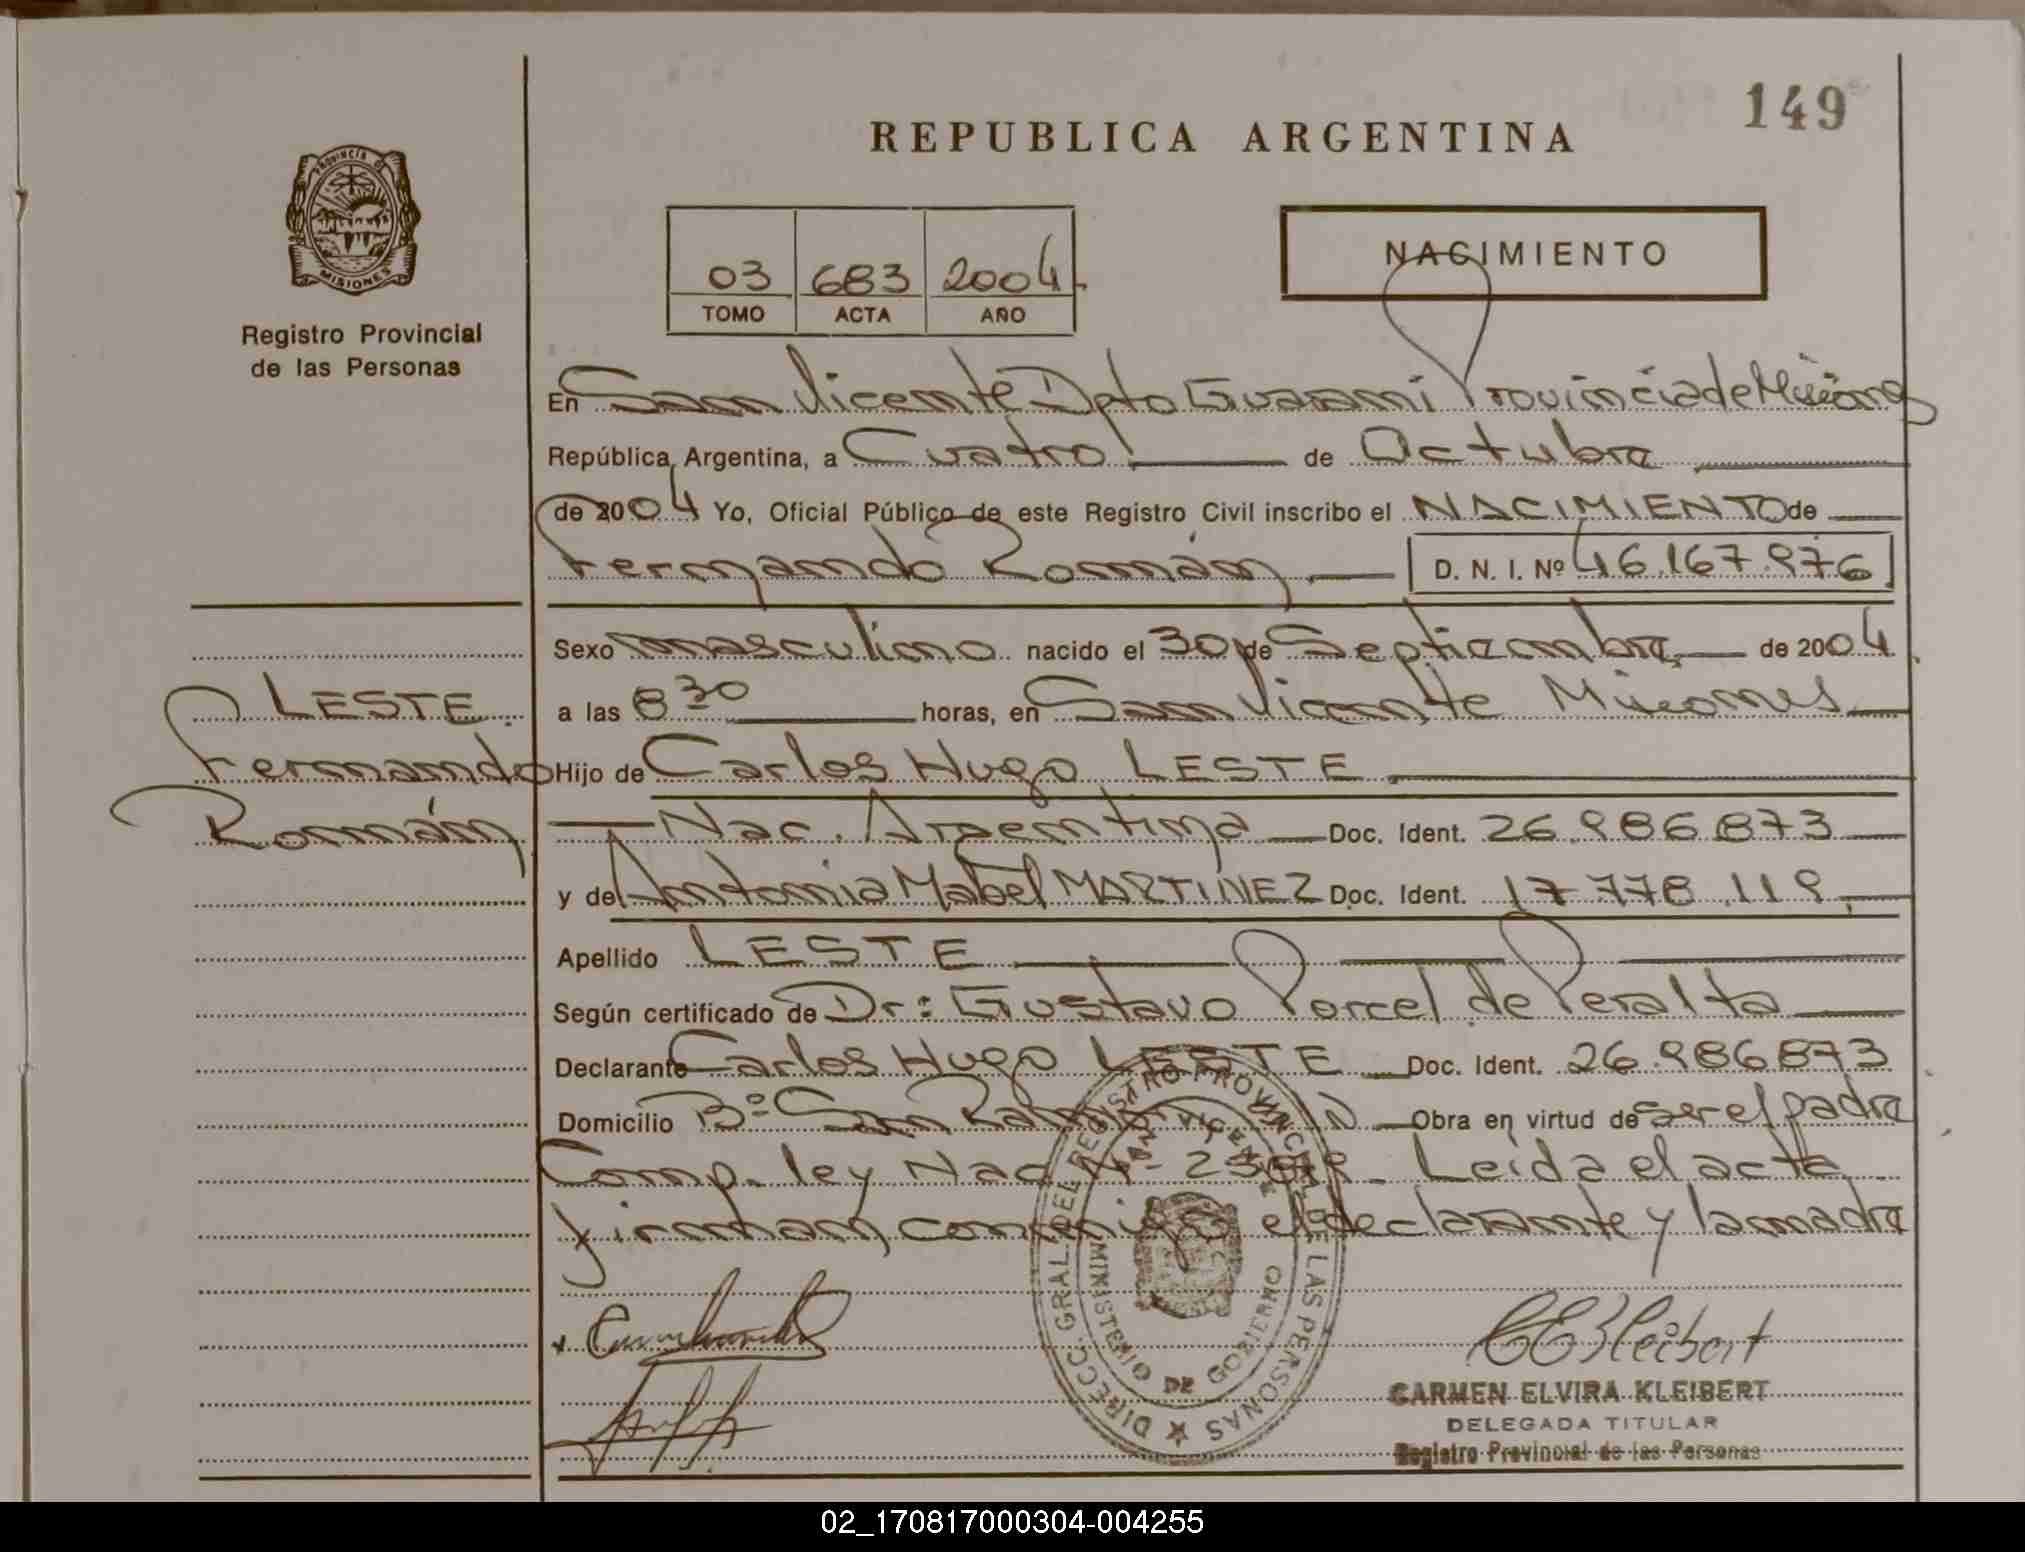 149
REPUBLICA ARGENTINA
PROVINCIA DE
MISIONES
Registro Provincial
de las Personas
NACIMIENTO
03 683 2004
TOMO ACTA AÑO
En San Vicente Dpto Guaraní Provincia de Misiones
República Argentina, a Cuatro de Octubre
de 2004 Yo, Oficial Público de este Registro Civil inscribo el NACIMIENTO de
Fernando Román D. N. I. Nº 46.167.976
Sexo masculino nacido el 30 de Septiembre de 2004
LESTE
Fernando
Román
a las 8 30 horas, en San Vicente Misiones
Hijo de Carlos Hugo LESTE
Nac. Argentina Doc. Ident. 26.986.873
y de Antonia Mabel MARTINEZ Doc. Ident. 17.778.119
Apellido LESTE
Según certificado de Dr: Gustavo Porcel de Peralta
Declarante Carlos Hugo LESTE Doc. Ident. 26.986.873
Domicilio Bº San Ramón Obra en virtud de ser el padre
Comp. ley Nac Nº Leída el acta
firman conmigo el declarante y la madre
DIRECC. GRAL. DEL REGISTRO PROVINCIAL DE LAS PERSONAS
SAN VICENTE
MINISTERIO DE GOBIERNO
CEKleibert
CARMEN ELVIRA KLEIBERT
DELEGADA TITULAR
Registro Provincial de las Personas
02_170817000304-004255